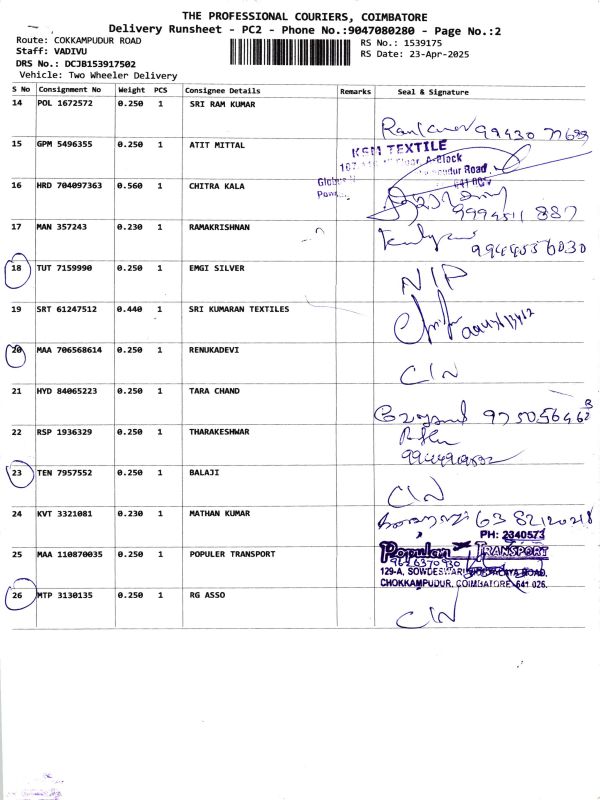 THE PROFESSIONAL COURIERS, COIMBATORE
Delivery Runsheet - PC2 - Phone No.:9047080280 - Page No.:2
Route: COKKAMPUDUR ROAD
RS No.: 1539175
Staff: VADIVU
RS Date: 23-Apr-2025
DRS No.: DCJB153917502
Vehicle: Two Wheeler Delivery
S No Consignment No Weight PCS Consignee Details Remarks Seal & Signature
14 POL 1672572 0.250 1 SRI RAM KUMAR
15 GPM 5496355 0.250 1 ATIT MITTAL
KSM TEXTILE
A-Block
Road
16 HRD 704097363 0.560 1 CHITRA KALA
9994511 887
17 MAN 357243 0.230 1 RAMAKRISHNAN
9944536030
18 TUT 7159990 0.250 1 EMGI SILVER
N/P
19 SRT 61247512 0.440 1 SRI KUMARAN TEXTILES
20 MAA 706568614 0.250 1 RENUKADEVI
C/N
21 HYD 84065223 0.250 1 TARA CHAND
22 RSP 1936329 0.250 1 THARAKESHWAR
23 TEN 7957552 0.250 1 BALAJI
C/N
24 KVT 3321081 0.230 1 MATHAN KUMAR
PH: 2340573
25 MAA 110870035 0.250 1 POPULER TRANSPORT
Popular TRANSPORT
129-A, ROAD,
CHOKKAMPUDUR, COIMBATORE-641 026.
26 MTP 3130135 0.250 1 RG ASSO
C/N